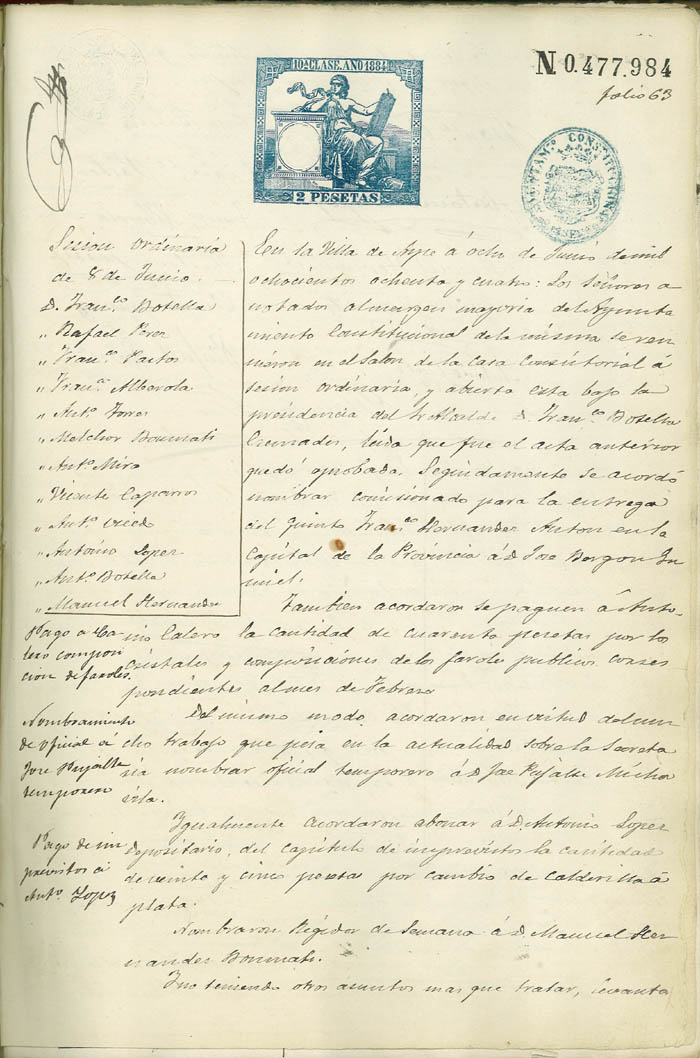 10ª CLASE. AÑO 1884
2 PESETAS
N.0.477.984
folio 63
AYUNTAMº. CONSTITUCIONAL
Sesion ordinaria
de 8 de Junio.
D. Franco. Botella
" Rafael Perez
" Franco. Pastor
" Franco. Alberola
" Anto. Torres
" Melchor Bonmati
" Anto. Miro
" Vicente Caparros
" Anto.
" Antonio Lopez
" Anto. Botella
" Manuel Hernandez
Pago a Ca
lero composi
cion de faroles.
Nombramiento
de oficial á
Jose Pujalte
temporero
Pago de im
previstos á
Anto. Lopez
En la Villa de Aspe á ocho de Junio de mil
ochocientos ochenta y cuatro: Los Señores a
notados al margen mayoria del Ayunta
miento Constitucional de la misma se reu
nieron en el Salon de la Casa Consistorial á
sesion ordinaria, y abierta esta bajo la
presidencia del Sr Alcalde D. Franco. Botella
Cremades, leida que fue el acta anterior
quedó aprobada. Seguidamente se acordó
nombrar comisionado para la entrega
del quinto Franco. Hernandez Anton en la
Capital de la Provincia á D. Jose
Tambien acordaron se paguen á Anto
nio Calero la cantidad de cuarenta pesetas por los
cristales y composiciones de los faroles publicos corres
pondientes al mes de Febrero
Del mismo modo acordaron en virtud del mu
cho trabajo que pesa en la actualidad sobre la Secreta
ria nombrar oficial temporero á D. Jose Pujalte
Igualmente acordaron abonar á D. Antonio Lopez
Depositario, del capitulo de imprevistos la cantidad
de veinte y cinco pesetas por cambio de calderilla á
plata.
Nombraron Regidor de Semana á D. Manuel Her
nandez Bonmati.
Y no teniendo otros asuntos mas que tratar, levanta